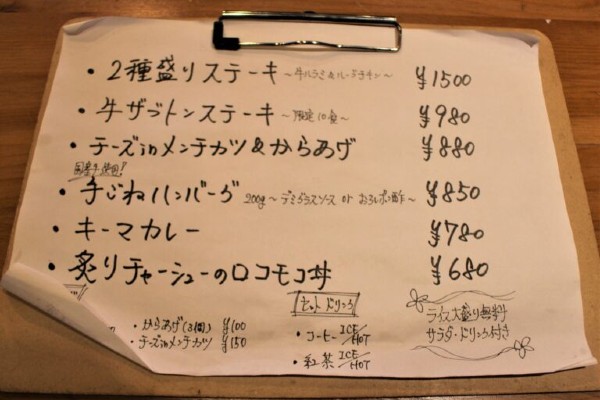 ・2種盛りステーキ ～牛ハラミ&ルーデチキン～ ¥1500
・牛ザブトンステーキ ～限定10食～ ¥980
・チーズinメンチカツ&からあげ ¥880
国産牛使用!
・手ごねハンバーグ 200g～デミグラスソース or おろしポン酢～ ¥850
・キーマカレー ¥780
・炙りチャーシューのロコモコ丼 ¥680
・からあげ(3個) ¥100
・チーズinメンチカツ ¥150
セットドリンク
・コーヒー ICE/HOT
・紅茶 ICE/HOT
ライス大盛り無料
サラダ・ドリンク付き